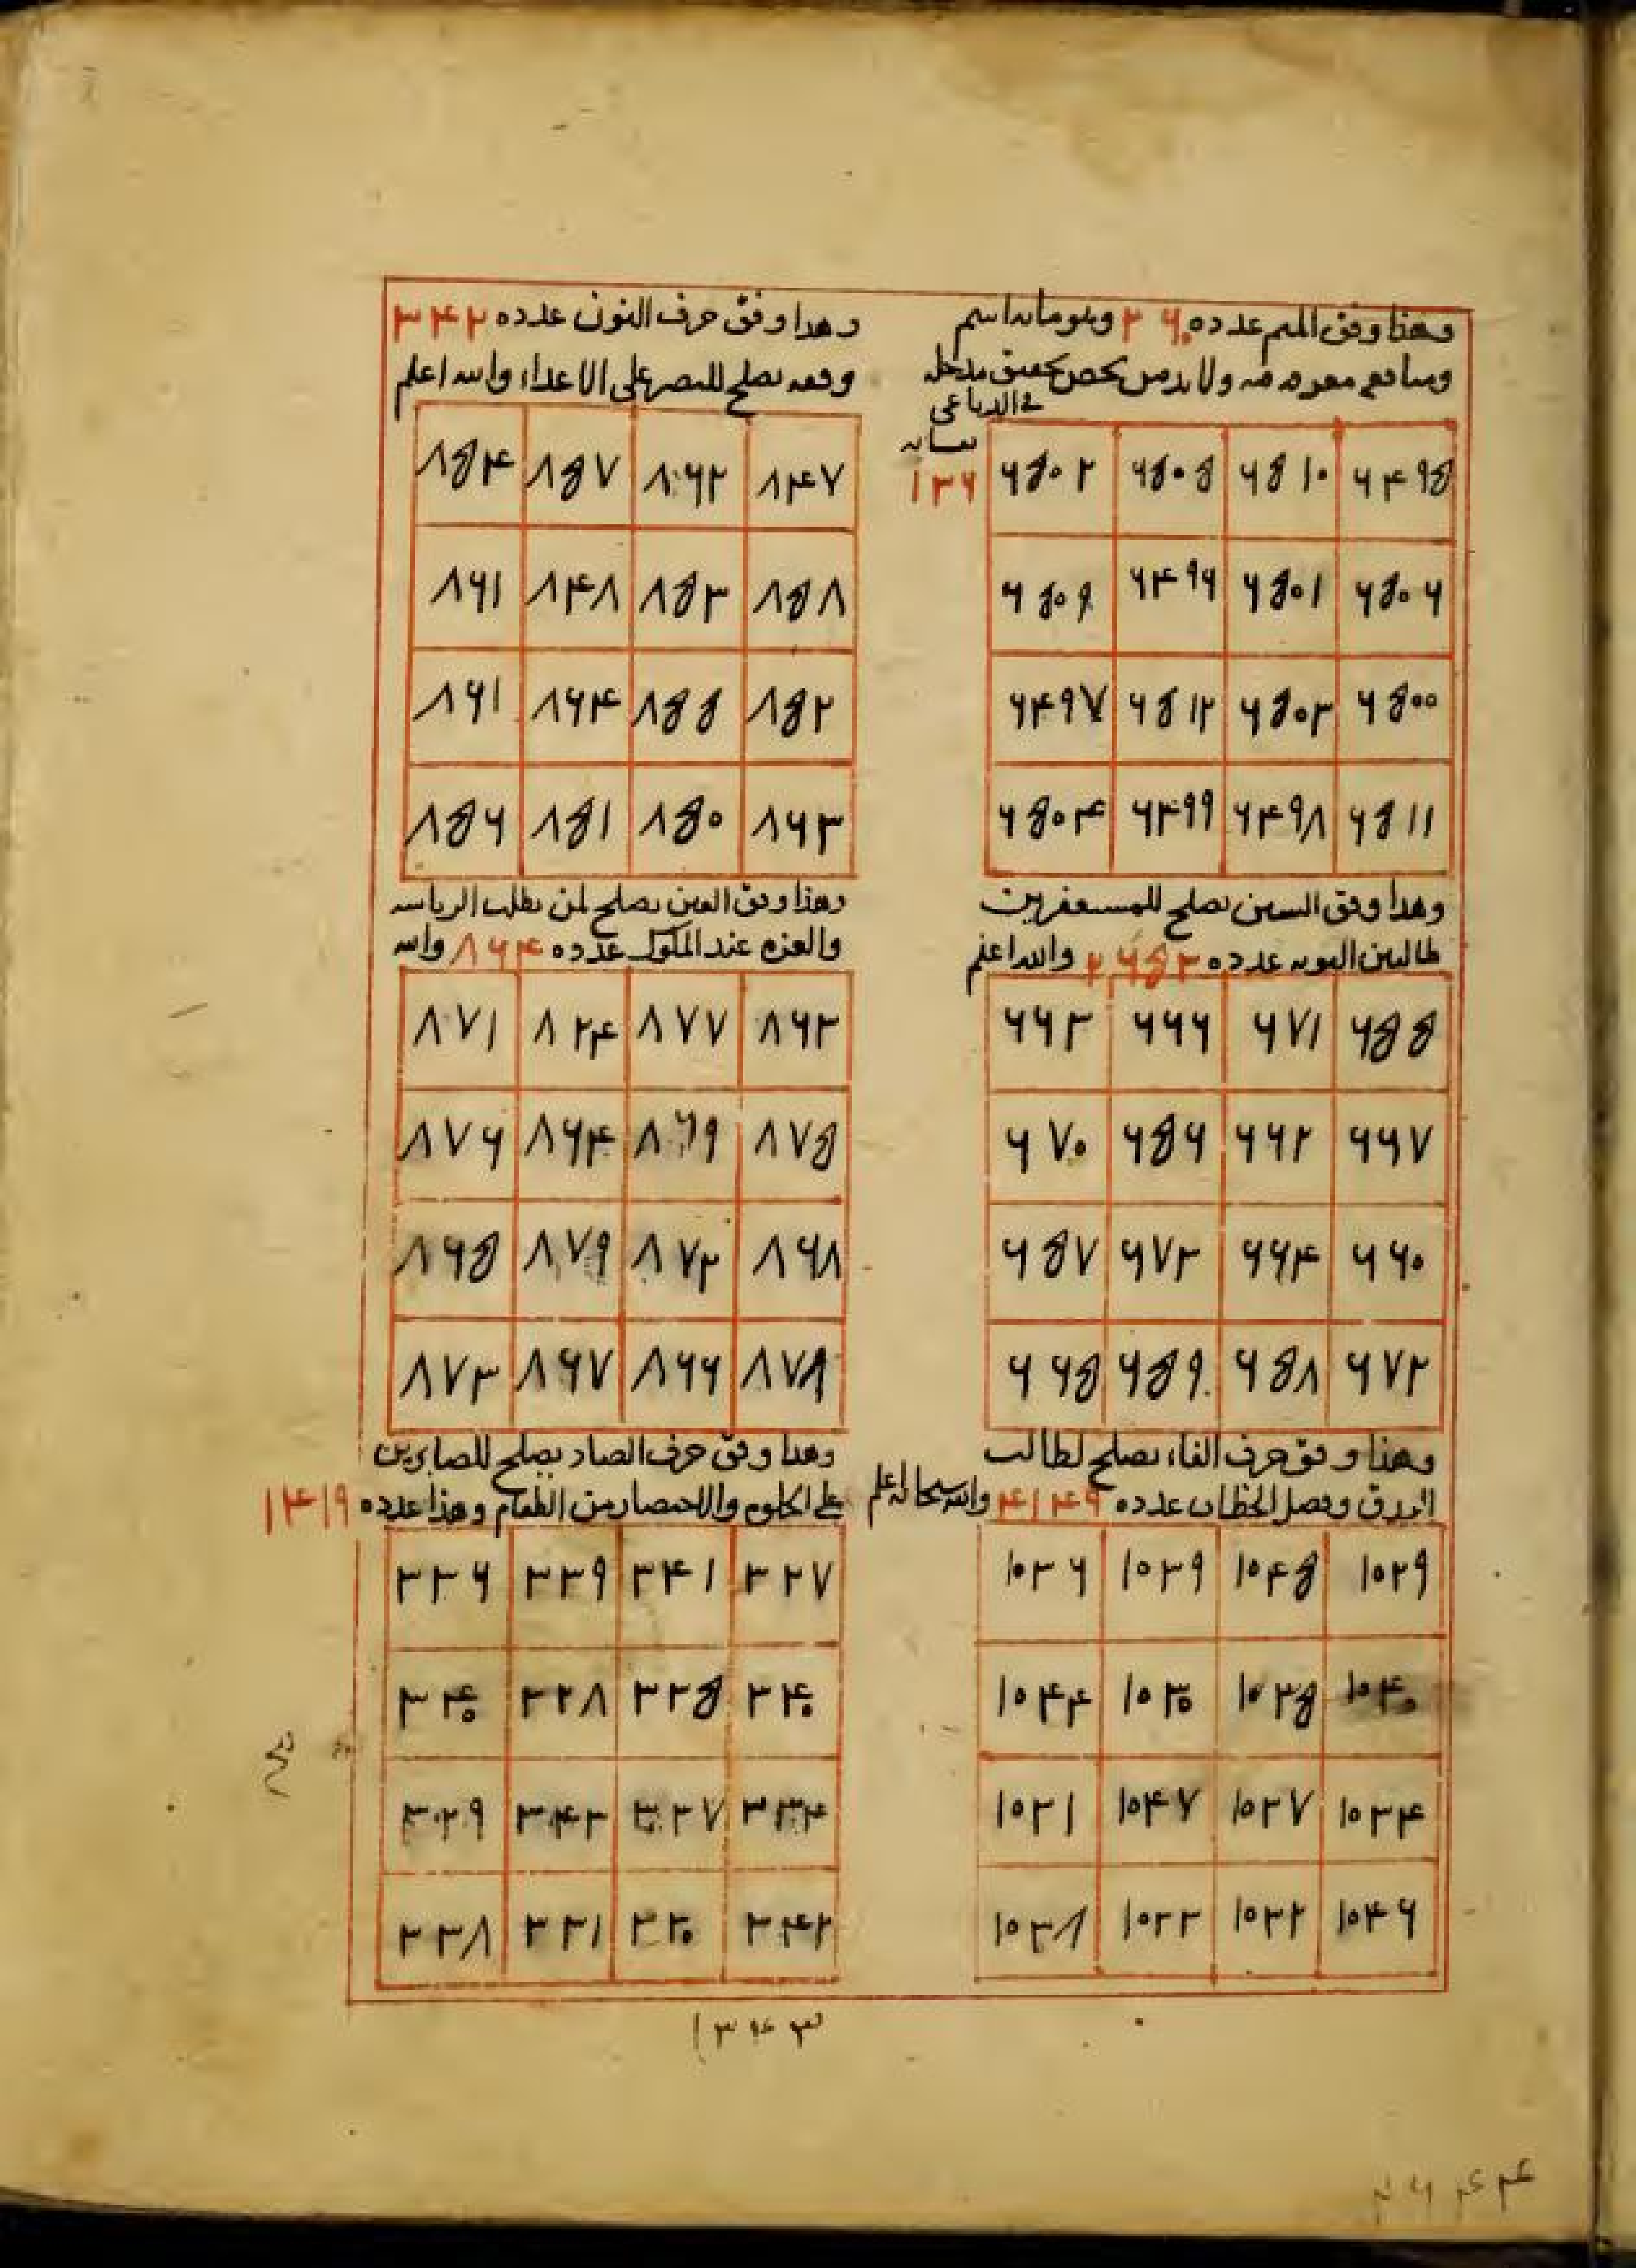 وهذا وفق الميم عدده ٢٦٠ وهو ما به اسم
ومنافع معروفه ولا بد من
في الرباعي
١٣٦
٦٥٠٢ ٦٥٠٥ ٦٥١٠ ٦٤٩٥
٦٥٠٩ ٦٤٩٦ ٦٥٠١ ٦٥٠٦
٦٤٩٧ ٦٥١٢ ٦٥٠٣ ٦٥٠٠
٦٥٠٤ ٦٤٩٩ ٦٤٩٨ ٦٥١١
وهذا وفق حرف النون عدده ٣٤٢
وفقه يصلح للنصر على الاعداء والله اعلم
٨٥٤ ٨٥٧ ٨٦٢ ٨٤٧
٨٦١ ٨٤٨ ٨٥٣ ٨٥٨
٨٦١ ٨٦٤ ٨٥٥ ٨٥٢
٨٥٦ ٨٥١ ٨٥٠ ٨٦٣
وهذا وفق السين يصلح
طالبين عدده ٢٦٥٣ والله اعلم
٦٦٣ ٦٦٦ ٦٧١ ٦٥٥
٦٧٠ ٦٥٦ ٦٦٢ ٦٦٧
٦٥٧ ٦٧٣ ٦٦٤ ٦٦٠
٦٦٥ ٦٥٩ ٦٥٨ ٦٧٢
وهذا وفق العين يصلح لمن يطلب الرياسه
والعزه عند الملوك عدده ٨٦٤ والله
٨٧١ ٨٢٤ ٨٧٧ ٨٦٣
٨٧٦ ٨٦٤ ٨٦٩ ٨٧٥
٨٦٥ ٨٧٩ ٨٧٢ ٨٦٨
٨٧٣ ٨٦٧ ٨٦٦ ٨٧٨
وهذا وفق حرف الفاء يصلح لطالب
وفصل الخطاب عدده ٤١٤٩ والله سبحانه اعلم
١٠٣٦ ١٠٣٩ ١٠٤٥ ١٠٢٩
١٠٤٤ ١٠٣٠ ١٠٣٥ ١٠٤٠
١٠٣١ ١٠٤٧ ١٠٣٧ ١٠٣٤
١٠٣٨ ١٠٣٣ ١٠٣٢ ١٠٤٦
وهذا وفق حرف الصاد يصلح للصابرين
على من الطعام وهذا عدده ١٤١٩
٣٣٦ ٣٣٩ ٣٤١ ٣٢٧
٣٤٠ ٣٢٨ ٣٣٥ ٣٤٠
٣٢٩ ٣٤٣ ٣٣٧ ٣٣٤
٣٣٨ ٣٣١ ٣٣٠ ٣٤٢
١٣٤٣